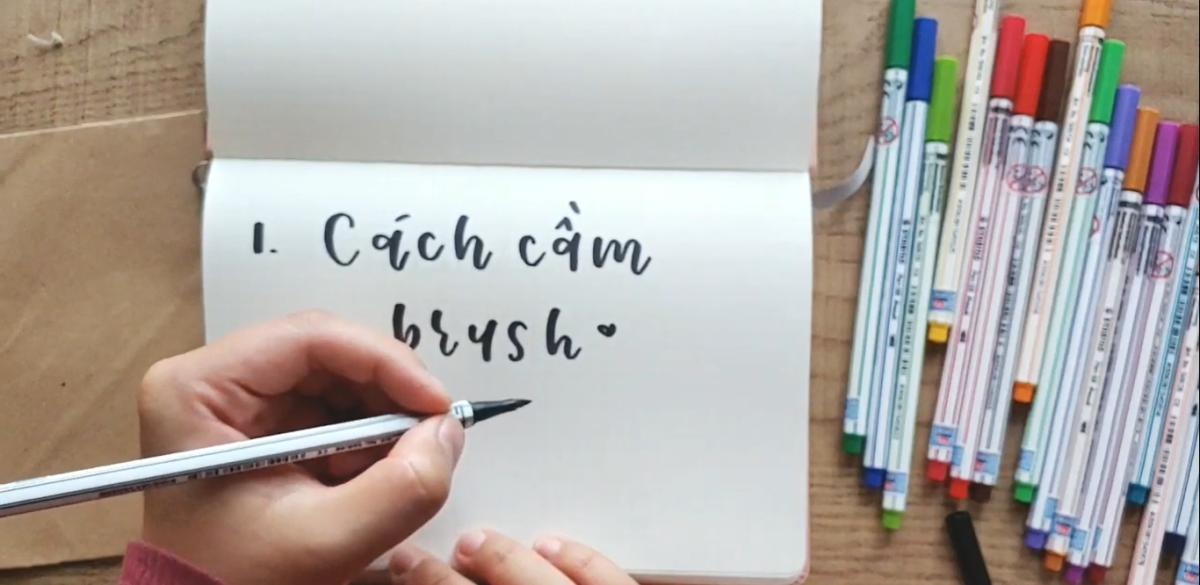 1. Cách cầm
brush